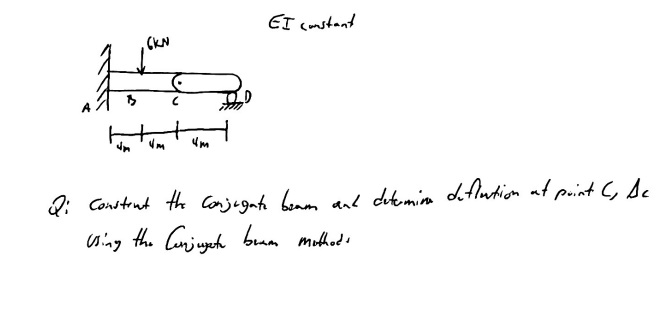 EI constant
6kN
A
B
C
D
4m
4m
4m
Q: Construct the Conjugate beam and determine deflection at point C, Δc
Using the Conjugate beam method.